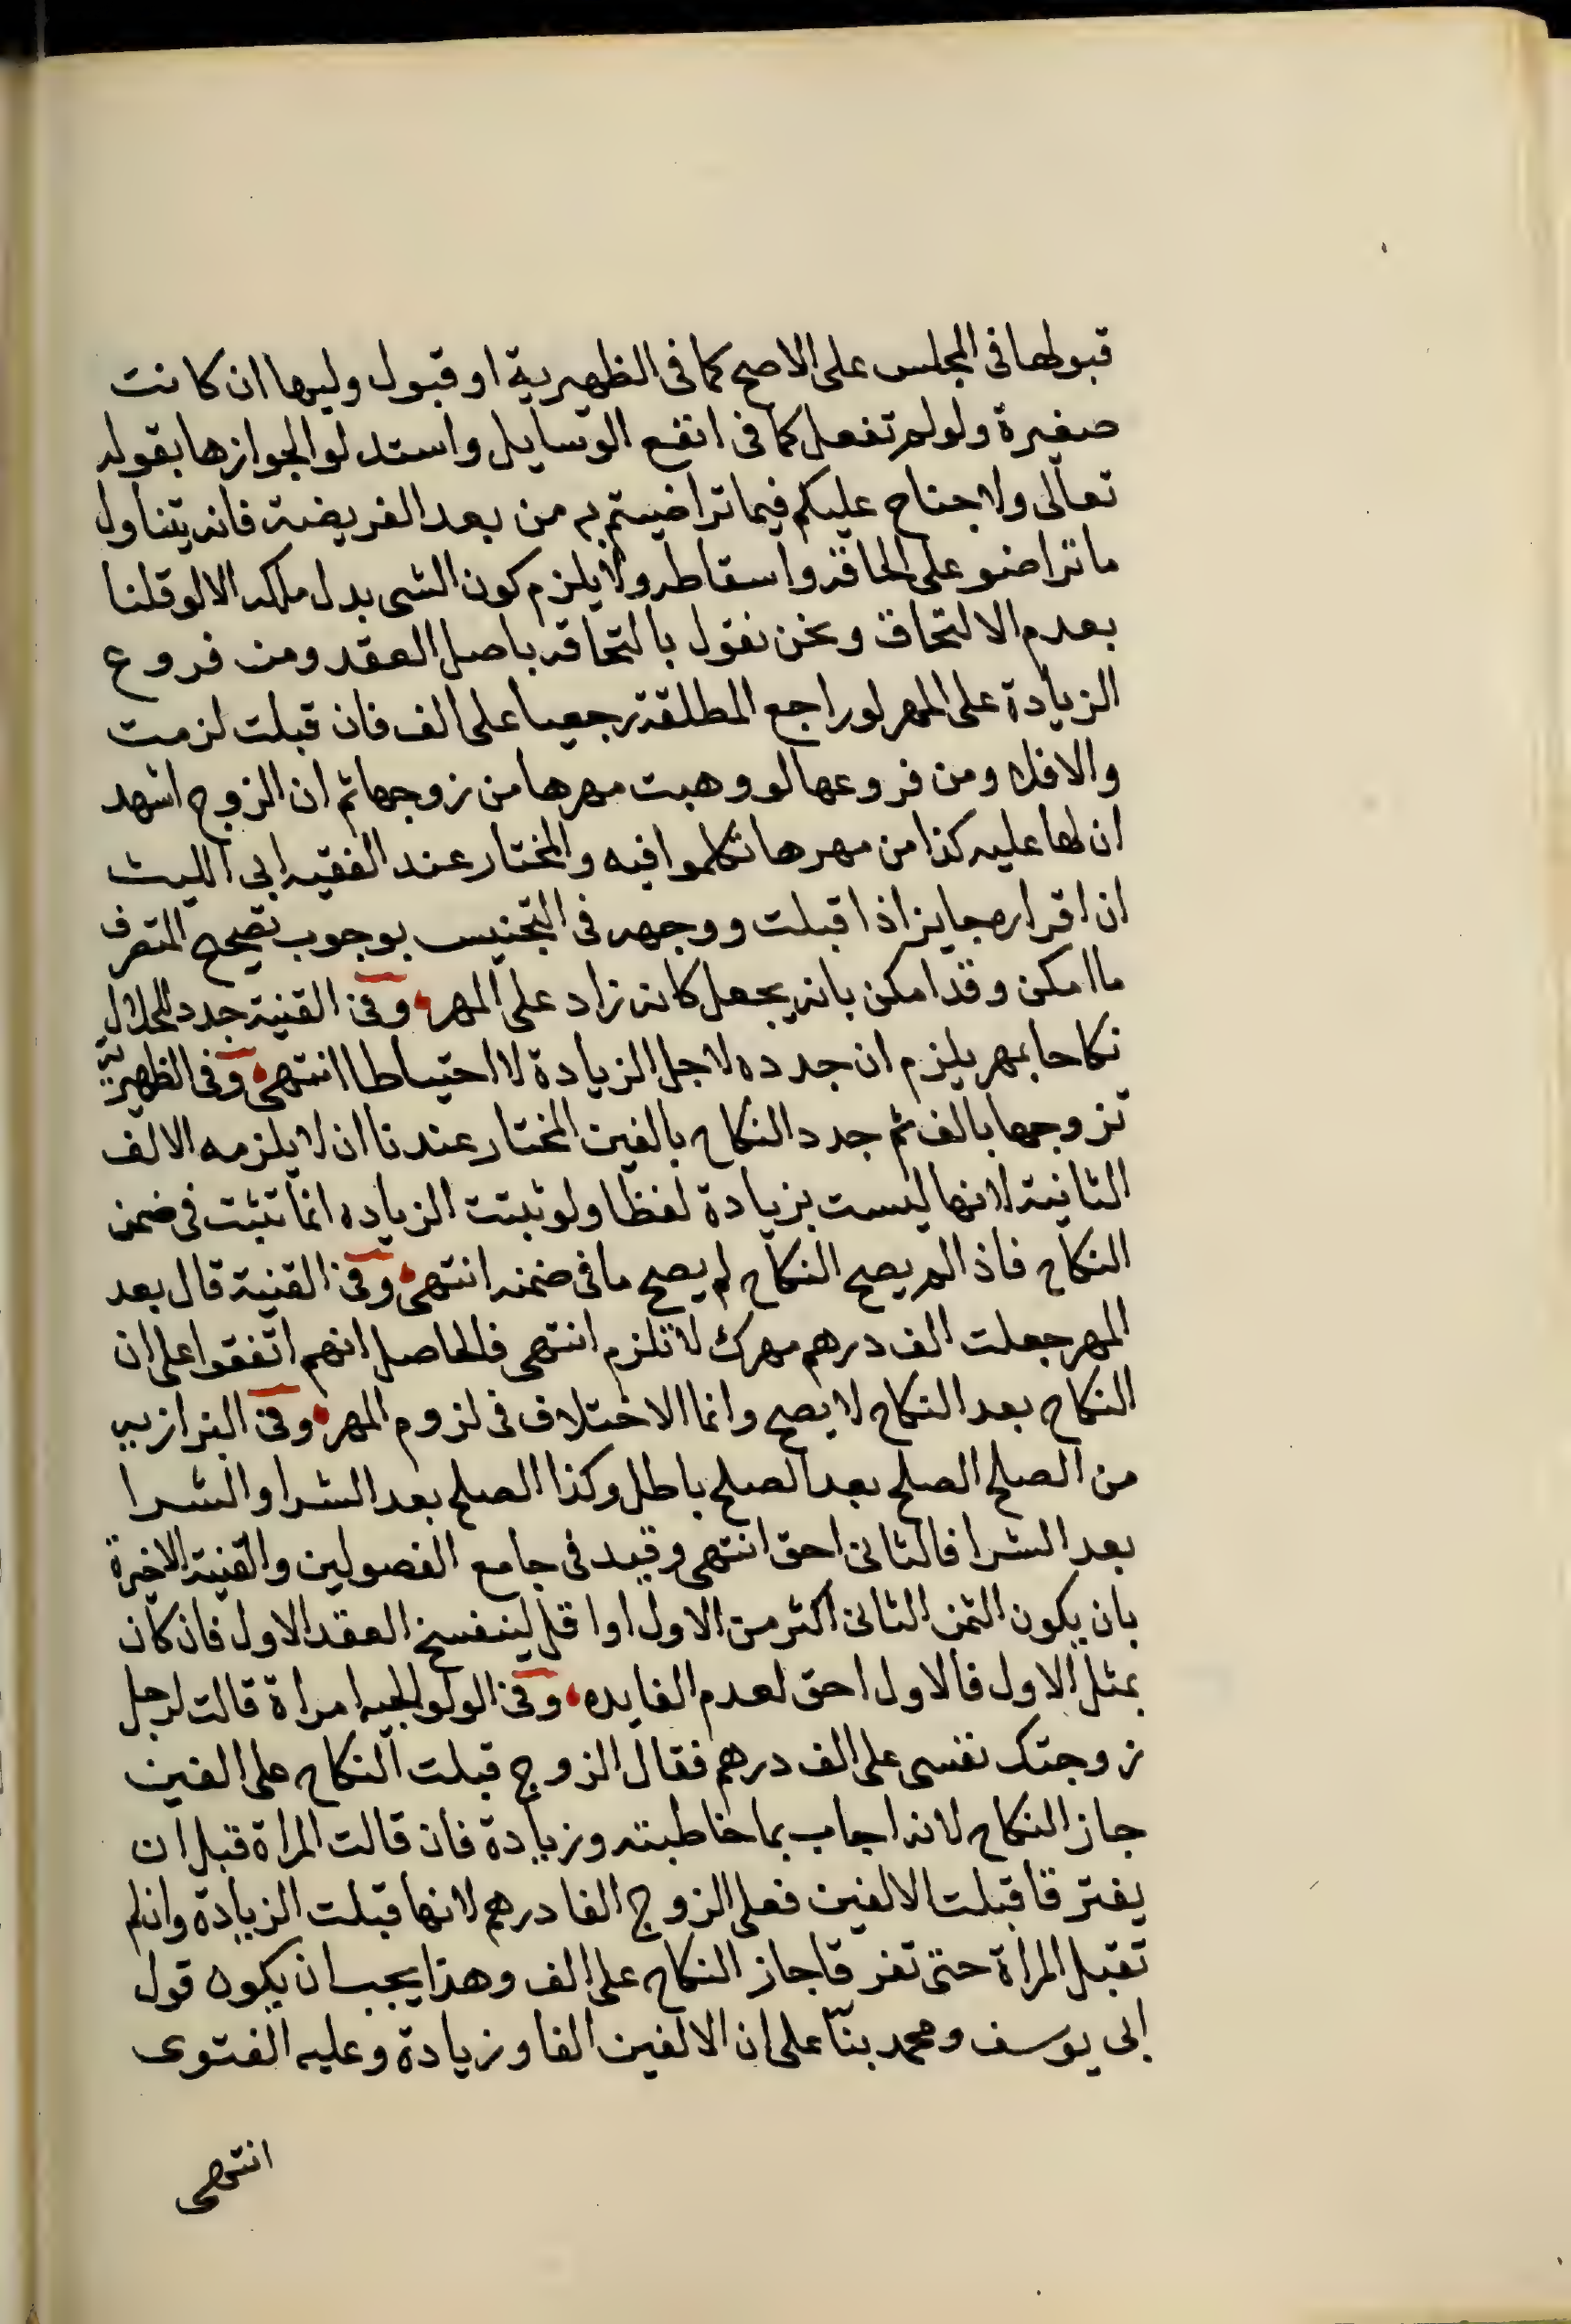 قبولها فى المجلس على الاصح كما فى الظهيرية او قبول وليها ان كانت
صغيرة ولو لم تفعل كما فى انفع الوسايل واستدلوا لجوازها بقوله
تعالى ولا جناح عليكم فيما تراضيتم به من بعد الفريضة فانه يتناول
ما تراضو على الحاقه واسقاطه ولا يلزم كون الشى بدل ملكه الا لو قلنا
بعدم الالتحاق ونحن نقول بالتحاقه باصل العقد ومن فروع
الزيادة على المهر لو راجع المطلقة رجعيا على الف فان قبلت لزمت
والا فلا ومن فروعها لو وهبت مهرها من زوجها ثم ان الزوج اشهد
ان لها عليه كذا من مهرها تكلموا فيه والمختار عند الفقيه ابى الليث
ان اقراره جايز اذا قبلت ووجهه فى التجنيس بوجوب تصحيح التصرف
ما امكن وقد امكن بانه يجعل كانه زاد على المهر وفى القنية جدد للحلال
نكاحا بمهر يلزم ان جدده لاجل الزيادة لا احتياطا انتهى وفى الظهيرية
تزوجها بالف ثم جدد النكاح بالفين المختار عندنا ان لا يلزمه الالف
الثانية لانها ليست بزيادة لفظا ولو ثبتت الزياده انما تثبت فى ضمن
النكاح فاذا لم يصح النكاح لم يصح ما فى ضمنه انتهى وفى القنية قال بعد
المهر جعلت الف درهم مهرك لا تلزم انتهى فالحاصل انهم اتفقوا على ان
النكاح بعد النكاح لا يصح وانما الاختلاف فى لزوم المهر وفى البزازيه
من الصلح الصلح بعد الصلح باطل وكذا الصلح بعد الشرا والشرا
بعد الشرا فالثانى احق انتهى وقيد فى جامع الفصولين والقنية الاخيرة
بان يكون الثمن الثانى اكثر من الاول او اقل لينفسخ العقد الاول فان كان
بمثل الاول فالاول احق لعدم الفايده وفى الولوالجيه امراة قالت لرجل
زوجتك نفسى على الف درهم فقال الزوج قبلت النكاح على الفين
جاز النكاح لانه اجاب بما خاطبته وزيادة فان قالت المراة قبل ان
يفترقا قبلت الالفين فعلى الزوج الفا درهم لانها قبلت الزيادة وان لم
تقبل المراة حتى تفرقا جاز النكاح على الف وهذا يجب ان يكون قول
ابى يوسف ومحمد بنا على ان الالفين الفا وزيادة وعليه الفتوى
انتهى